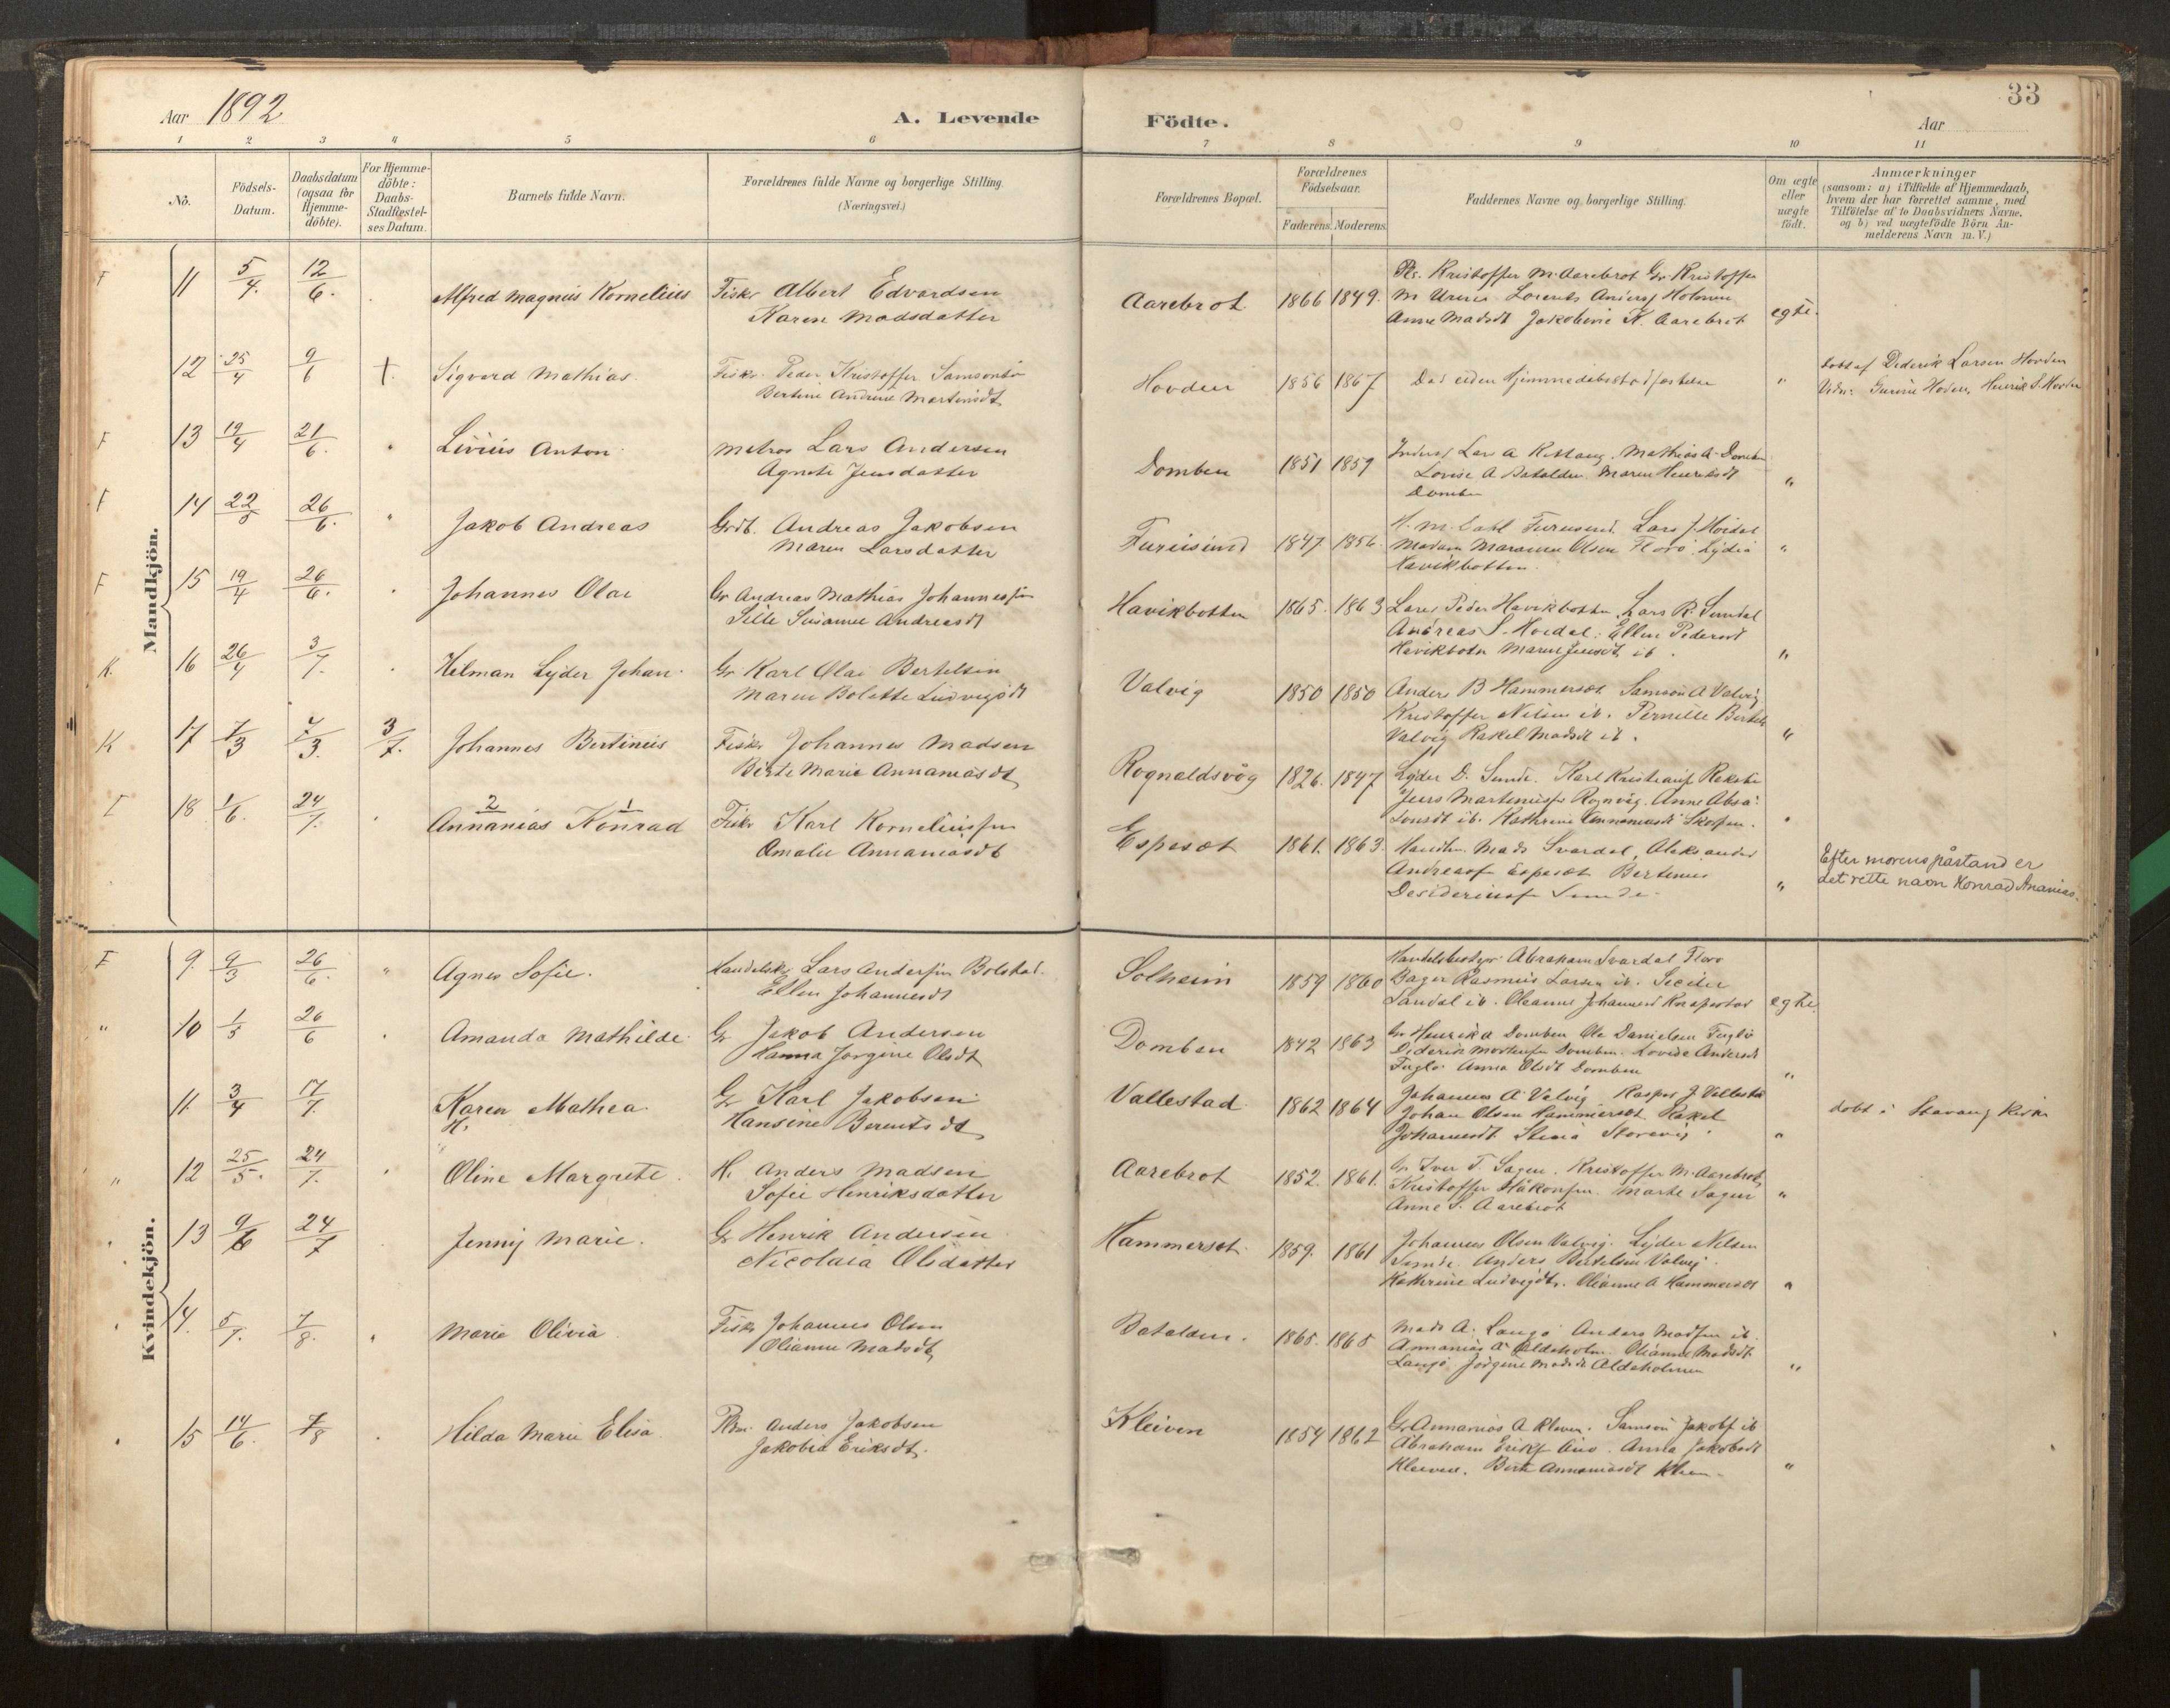 33
Aar 1892
A. Levende
Födte.
Aar
1 2 3 4 5 6 7 8 9 10 11
No.
Födsels-
Datum.
Daabsdatum
(ogsaa for
Hjemme-
döbte).
For Hjemme-
döbte:
Daabs-
Stadfæstel-
ses Datum.
Barnets fulde Navn.
Forældrenes fulde Navne og borgerlige Stilling.
(Næringsvei.)
Forældrenes Bopæl.
Forældrenes
Födselsaar.
Faderens. Moderens.
Faddernes Navne og borgerlige Stilling.
Om ægte
eller
uægte
födt.
Anmærkninger
(saasom: a) i Tilfælde af Hjemmedaab,
hvem der har forrettet samme, med
Tilföielse af to Daabsvidners Navne.
og b) ved uægtefödte Börn An-
melderens Navn m. V.)
Mandkjön.
F 11 5/4. 12/6. Alfred Magnus Kornelius Fisker Albert Edvardsen
Karen Madsdatter
Aarebrot 1866 1849. Kristoffer M. Aarebrot Gr. Kristoffer
Anne Madsdt Jakobine K. Aarebrot egte.
12 25/4 9/6 +. Sigvard Mathias. Fisker Peder Kristoffer
Bertine Andrine Martinsdt
Hovden 1856 1867 "
Döbt af Diderik Larsen Hovden
Vidn: Hovden, Henrik S. Hovden
F 13 19/4 21/6. " Livius Anton Matros Lars Andersen
Agnete Jensdatter
Domben 1851 1859 Mathias A. Domben
Lovise A Batalden Maren Henriksdt
Domben "
F 14 22/5 26/6. " Jakob Andreas Grdb. Andreas Jakobsen
Maren Larsdatter
Furusund 1847 1856. H. M. Dahl Furusund. Lars J. Hoidal
Madam Olsen Florö Lydia
Havikbotten. "
F 15 19/4 26/6. Johannes Olai Gr Andreas Mathias
Andreasdt
Havikbotten 1865. 1863 Lars Peder Havikbotten Lars R. Sundal
Andreas S. Hoidal: Ellen Pedersdt
Havikboten Maren Jensdt ib. "
K. 16 26/4 3/7. Hilman Lyder Johan. Gr Karl Olai Bertelsen
Maren Bolette Ludvigsdt
Valvig 1850 1850 Anders B Hammerset. Samson A Valvig
Kristoffer Nilsen ib. Pernille
Valvig Rakel Madsdt ib. "
K 17 7/3 7/3. 3/7. Johannes Bertineus Fisker Johannes Madsen
Berte Marie Annaniasdt
Rognaldsvåg 1826. 1847 Lyder D. Sunde.
Anne
ib. Kathrine Annaniasdt "
F 18 1/6. 24/7. 2 1
Annanias Konrad Fisker Karl
Amalie Annaniasdt
Espeset 1861. 1863. Handlm. Mads Svardal, Aleksander
Espeset Bertinus
Sunde. "
Efter morens påstand er
det rette navn Konrad Ananias.
Kvindekjön.
F 9. 9/3 26/6. " Agnes Sofie. Lars Bolstad.
Ellen Johannesdt
Solheim 1859 1860 Abraham Svardal Floro
Bager Rasmus Larsen ib. Secilie
Sandal ib. Oleanne egte.
" 10 1/5 26/6 Amanda Mathilde. Gr Jakob Andersen
Hanna Jorgine Olsdt
Domben 1842 1863 Gr Henrik A Domben Ole Danielsen Fuglö
Diderik Domben. Lovise Andersdt
Fuglö Anna Olsdt Domben "
11. 3/4 17/7. Karen Mathea. Gr Karl Jakobsen
H. Hansine Berentsdt
Vallestad. 1862 1864 Johannes A. Valvig Kasper J Vallestad
Johan Olsen Hammerset Rakel
Johannesdt "
döbt i Stavang kirke
" 12 25/5. 24/7. " Oline Margrete. H. Anders Madsen
Sofie Henriksdatter
Aarebrot 1852. 1861. Gr Iver T. Sagen. Kristoffer M. Aarebrot
Kristoffer Marte Sagen
Anne S. Aarebrot "
" 13 9/6 24/7 Jenny Marie. Gr Henrik Andersen
Nicolaia Olsdatter
Hammerset. 1859. 1861 Johannes Olsen Valvig. Lyder Nilsen
Sunde. Anders Bertelsen Valvig.
Kathrine Ludvigsdtr. Oleanne A Hammerset "
" 14. 5/7. 7/8. " Marie Olivia. Fisker Johannes Olsen
Olianne Madsdt
Batalden. 1865. 1865 Mads A. Langö Anders ib
Annanias A Aldeholm. Olianne Madsdt
Langö Jörgine Madsdt Aldeholmen "
" 15 14/6. 7/8 Hilda Marie Elisa. Anders Jakobsen
Jakobia Eriksdt.
Kleiven 1854 1862 Gr Annanias A Kleven. Samson Jakobs ib
Abraham Anna Jakobsdt
Kleiven. Berte Annaniasdt "